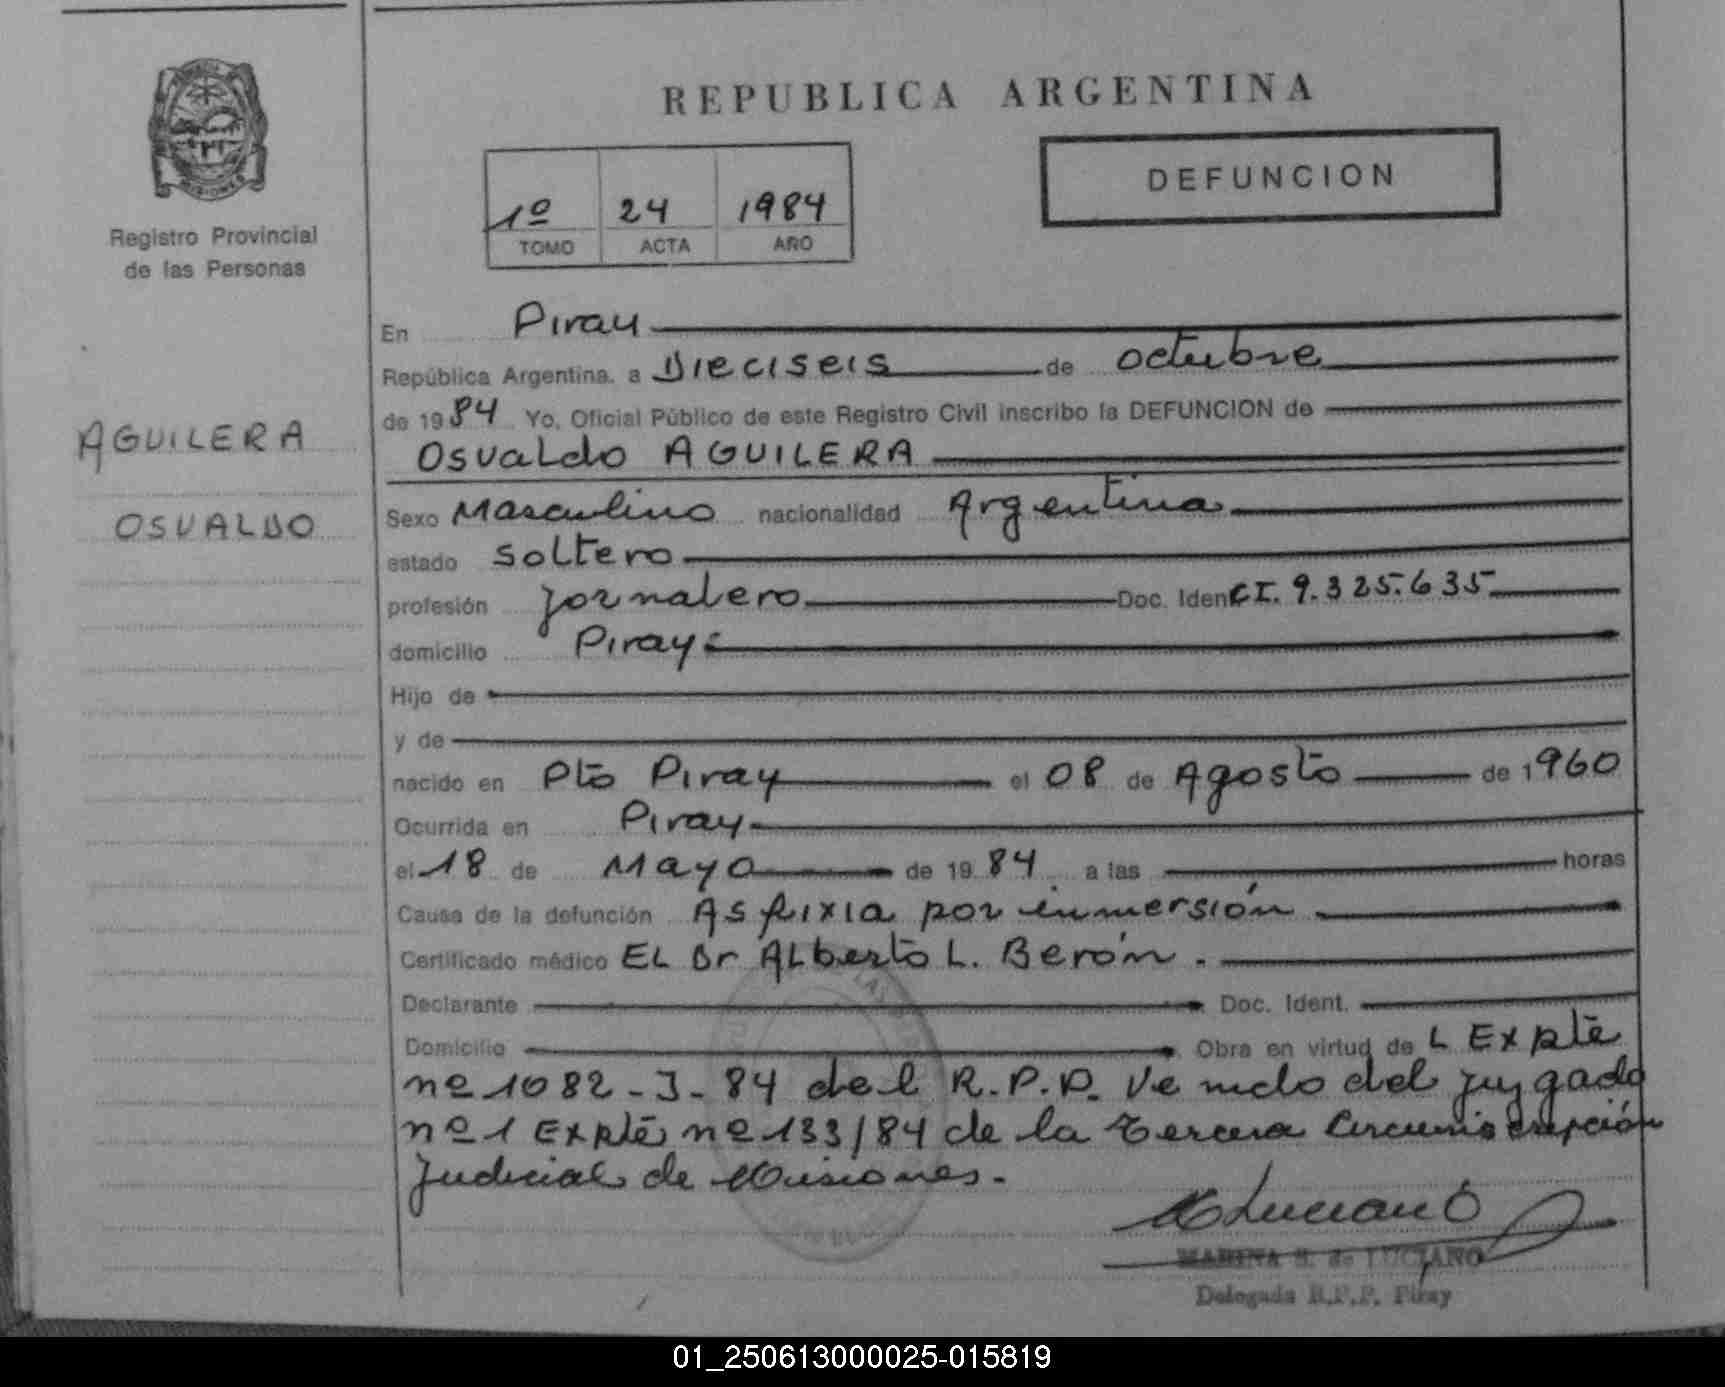 REPUBLICA ARGENTINA
MISIONES
Registro Provincial
de las Personas
1º 24 1984
TOMO ACTA AÑO
DEFUNCION
AGUILERA
OSVALDO
En Piray
República Argentina. a Dieciseis de octubre
de 1984 Yo, Oficial Público de este Registro Civil inscribo la DEFUNCION de
Osvaldo AGUILERA
Sexo Masculino nacionalidad Argentina
estado Soltero
profesión Jornalero Doc. Ident CI. 9.325.635
domicilio Piray
Hijo de
y de
nacido en Pto Piray el 08 de Agosto de 1960
Ocurrida en Piray
el 18 de Mayo de 1984 a las horas
Causa de la defunción Asfixia por inmersión
Certificado médico EL Dr Alberto L. Berón.
Declarante Doc. Ident.
Domicilio Obra en virtud de L Expte
nº 1082-J-84 del R.P.P. Venido del Juzgado
nº 1 Expte nº 133/84 de la Tercera Circunscripción
Judicial de Misiones.
Luciano
MARINA S. de LUCIANO
Delegada R.P.P. Piray
01_250613000025-015819